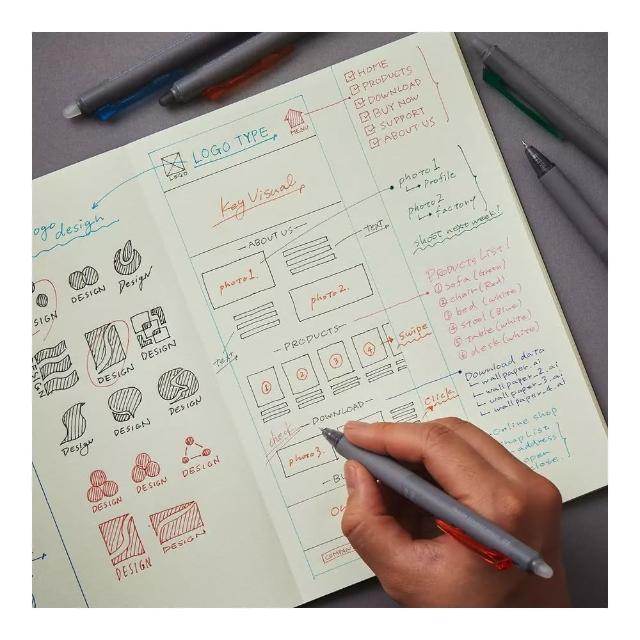 logo design
DESIGN
DESIGN
Design
DESIGN
DESIGN
DESIGN
Design
DESIGN
DESIGN
DESIGN
DESIGN
DESIGN
DESIGN
DESIGN
LOGO
LOGO TYPE
MENU
Key Visual
ABOUT US
photo1.
TEXT
photo2.
TEXT
PRODUCTS
① ② ③ ④
Swipe
check
DOWNLOAD
Click
photo3.
HOME
PRODUCTS
DOWNLOAD
BUY NOW
SUPPORT
ABOUT US
photo1
profile
photo2
factory
shoot next week!
PRODUCTS LIST!
① sofa (Green)
② chair (Red)
③ bed (white)
④ stool (Blue)
⑤ table (white)
⑥ desk (white)
Download data
wallpaper.ai
wallpaper-2.ai
wallpaper-3.ai
wallpaper-4.ai
Online shop
shop List
address
open
close.